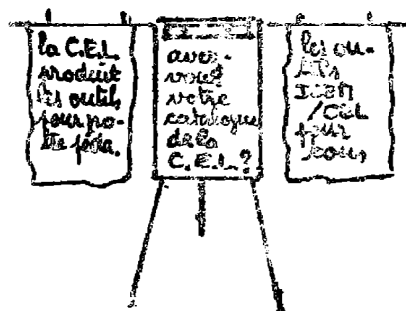 la C.E.L.
produit
les outils
pour no-
tre péda.
avez-
vous
votre
catalogue
de la
C.E.L.?
les ou-
tils
ICEM
/CEL
pour
tous